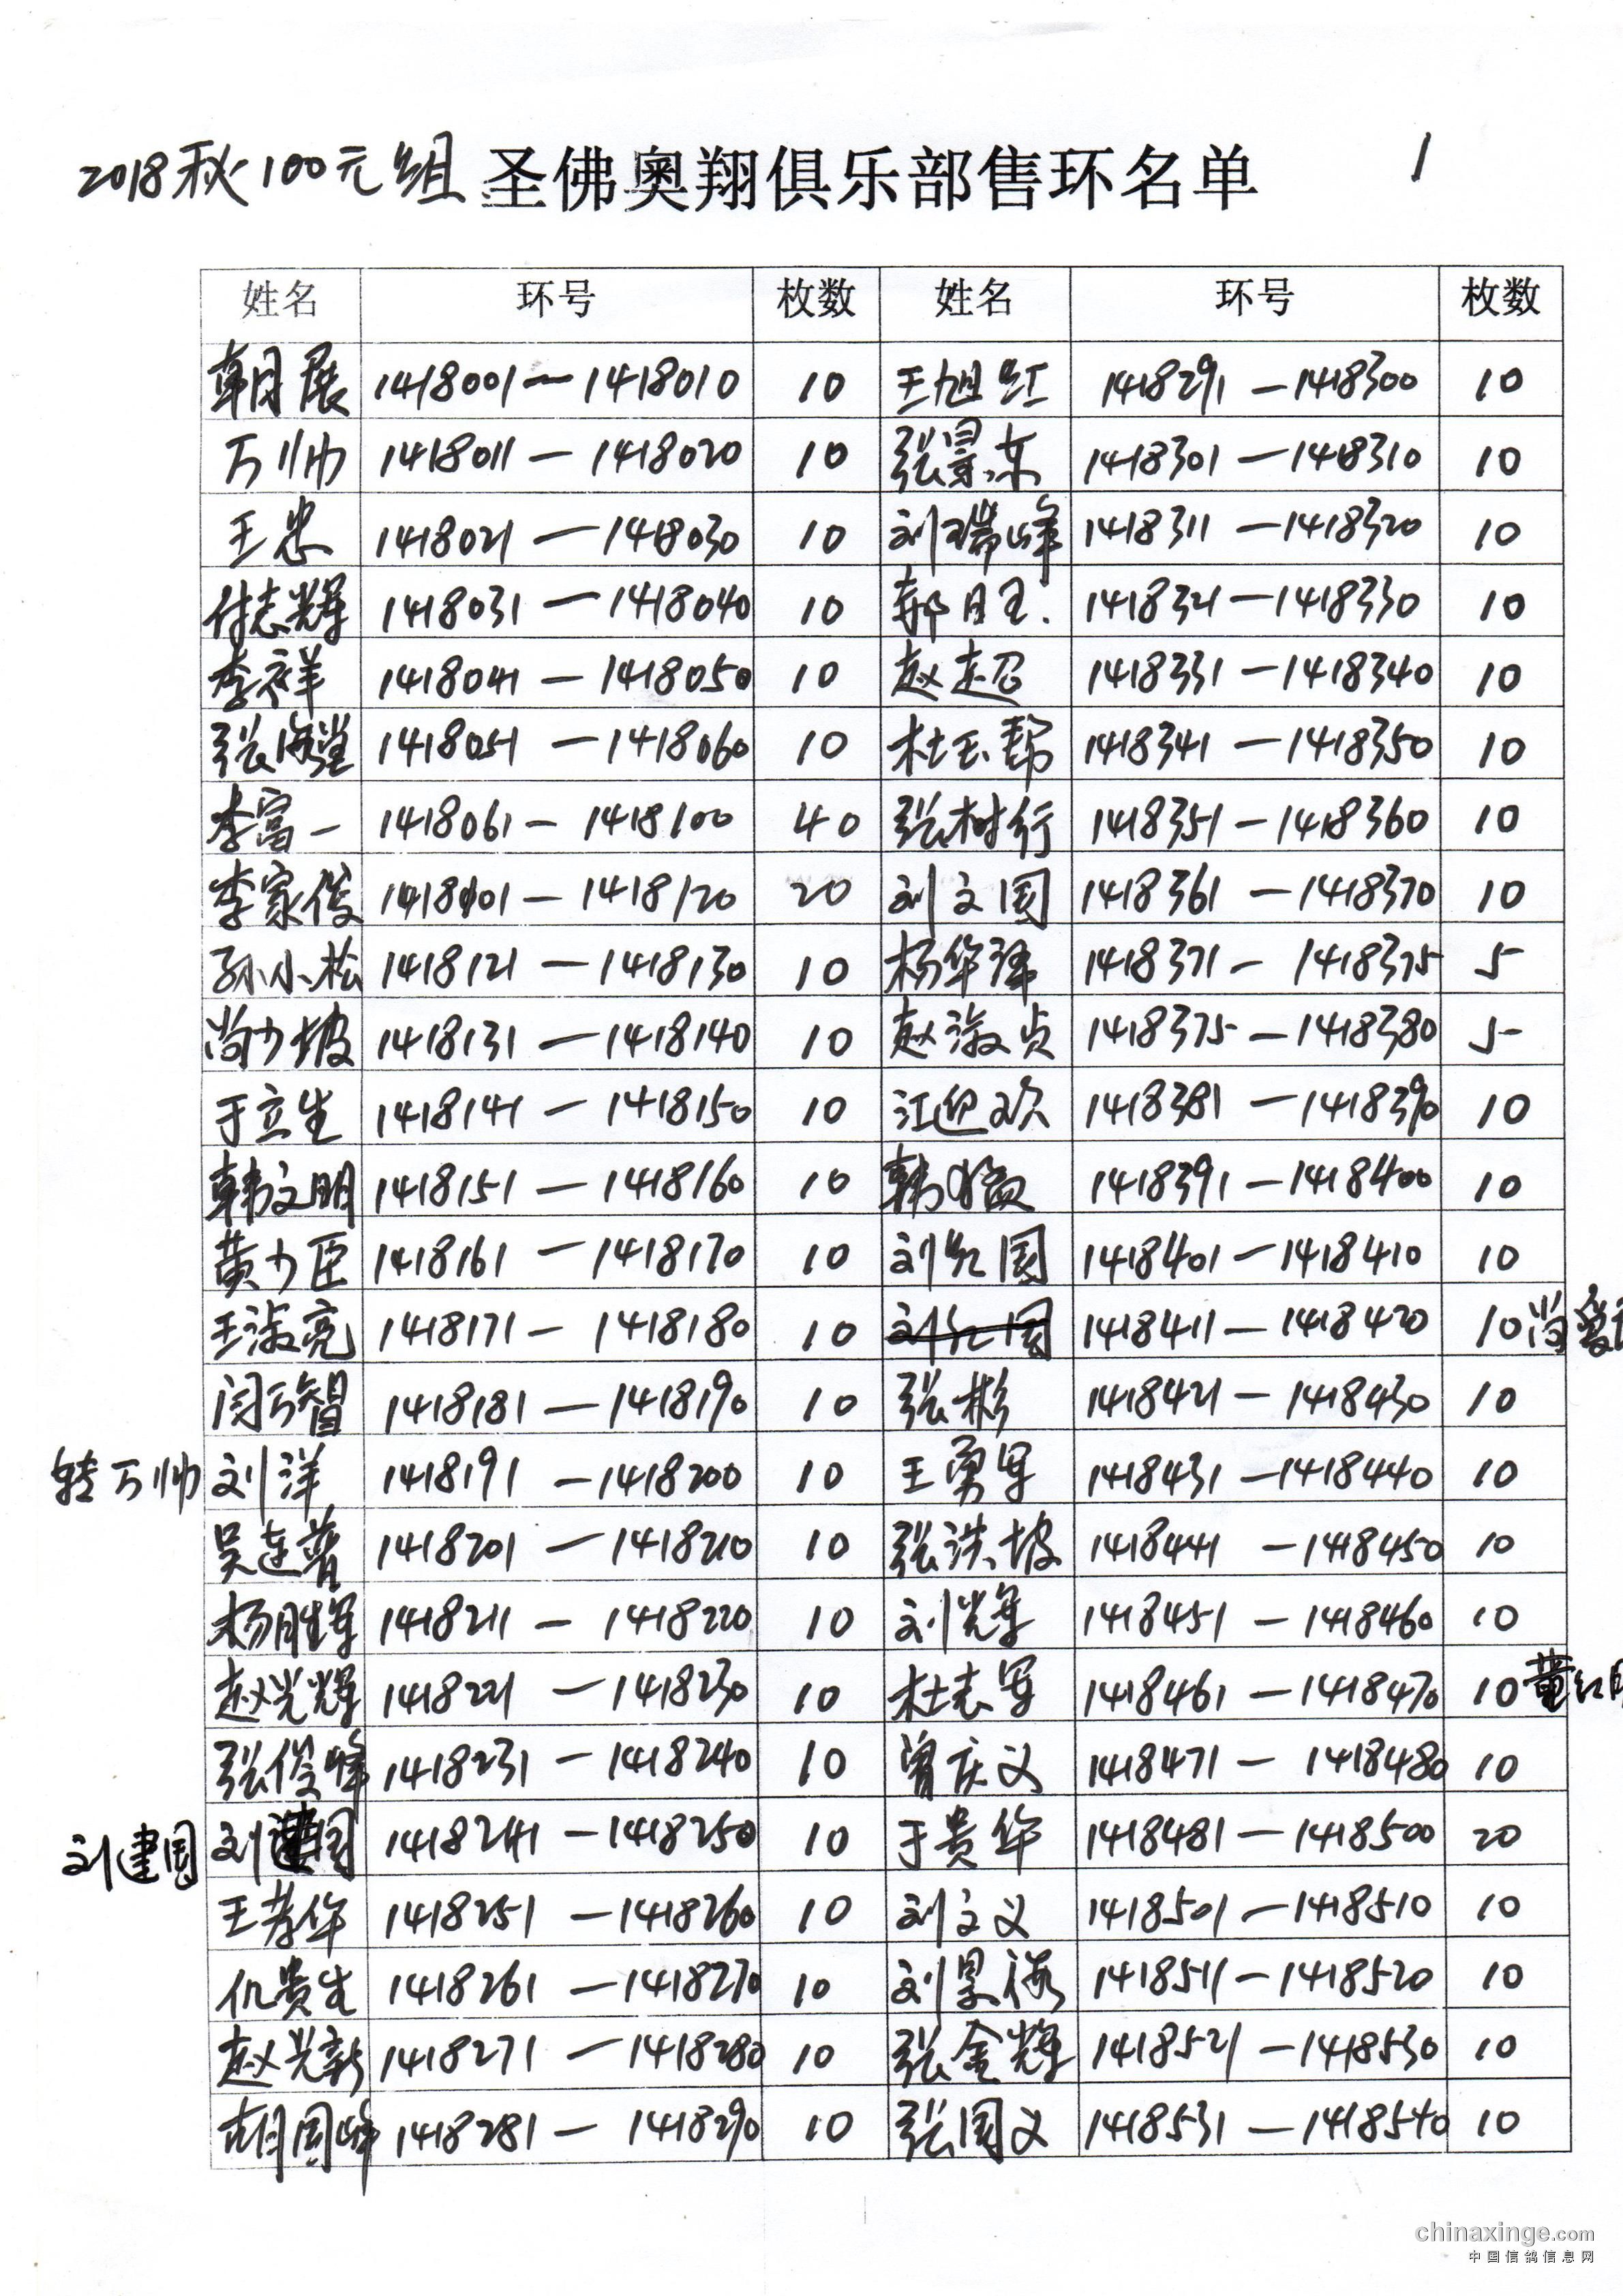 2018秋100元组 圣佛奥翔俱乐部售环名单 1
姓名 环号 枚数 姓名 环号 枚数
朝展 1418001—1418010 10 王旭红 1418291—1418300 10
万帅 1418011—1418020 10 张景东 1418301—1418310 10
王忠 1418021—1418030 10 刘瑞峰 1418311—1418320 10
付志辉 1418031—1418040 10 1418321—1418330 10
李祥 1418041—1418050 10 赵起 1418331—1418340 10
张海莹 1418051—1418060 10 杜玉帮 1418341—1418350 10
李富一 1418061—1418100 40 张树行 1418351—1418360 10
李家俊 1418101—1418120 20 刘文国 1418361—1418370 10
孙小松 1418121—1418130 10 杨华伟 1418371—1418375 5
尚力坡 1418131—1418140 10 赵淑贞 1418375—1418380 5
于立生 1418141—1418150 10 江迎欢 1418381—1418390 10
韩文明 1418151—1418160 10 韩猛 1418391—1418400 10
黄力臣 1418161—1418170 10 刘红国 1418401—1418410 10
王淑亮 1418171—1418180 10 刘红国 1418411—1418420 10 尚爱
闫万智 1418181—1418190 10 张彬 1418421—1418430 10
转万帅 刘洋 1418191—1418200 10 王勇军 1418431—1418440 10
吴连普 1418201—1418210 10 张洪坡 1418441—1418450 10
杨胜军 1418211—1418220 10 刘辉 1418451—1418460 10
赵光辉 1418221—1418230 10 杜志军 1418461—1418470 10 董红
张俊峰 1418231—1418240 10 曾庆义 1418471—1418480 10
刘建国 刘建国 1418241—1418250 10 于贵华 1418481—1418500 20
王孝华 1418251—1418260 10 刘文义 1418501—1418510 10
仉贵生 1418261—1418270 10 刘景 1418511—1418520 10
赵兴新 1418271—1418280 10 张金辉 1418521—1418530 10
胡国峰 1418281—1418290 10 张国义 1418531—1418540 10
chinaxinge.com
中国信鸽信息网